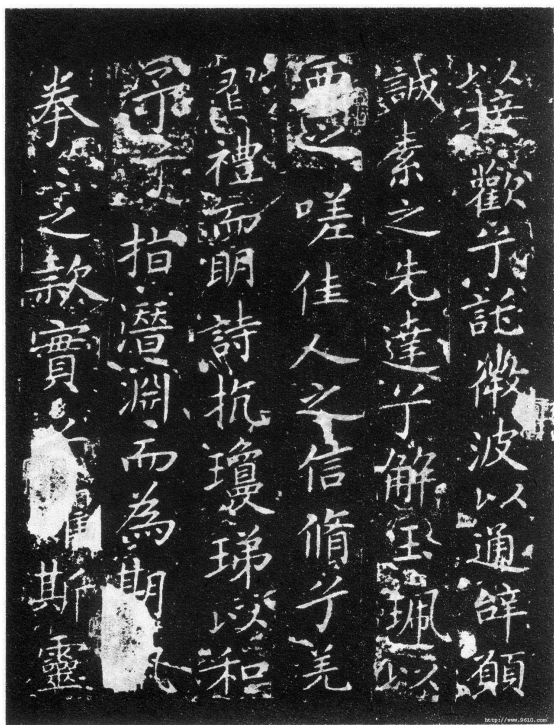 以接歡兮託微波以通辭願
誠素之先達兮解玉珮以
要之嗟佳人之信脩兮羌
習禮而眀詩抗瓊珶以和
予兮指潛淵而為期
拳々之款實兮懼斯靈
http://www.9610.com